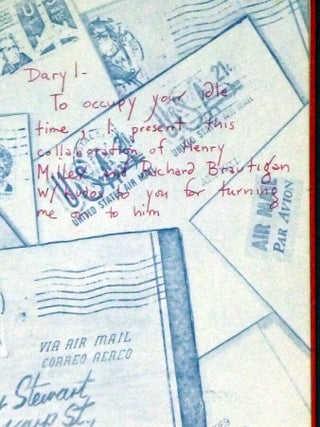 Daryl-
To occupy your idle
time, I present this
collaboration of Henry
Miller and Richard Brautigan
w/ kudos to you for turning
me on to him
UNITED STATES AIR MAIL
UNITED STATES AIR MAIL
AIR MAIL
PAR AVION
VIA AIR MAIL
CORREO AEREO
Stewart
St.,